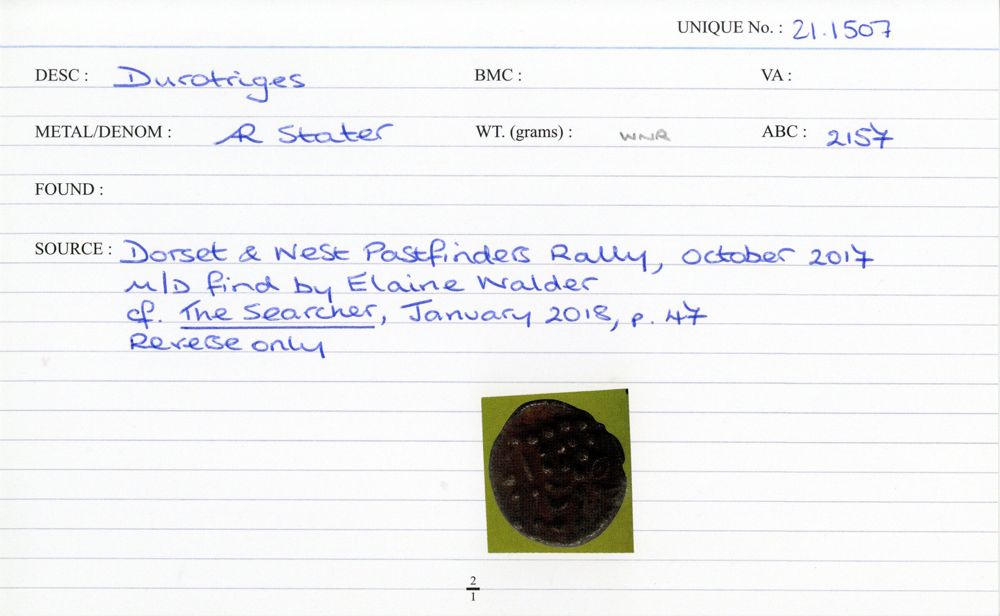 UNIQUE No. : 21.1507
DESC : Durotriges BMC : VA :
METAL/DENOM : AR Stater WT. (grams) : WNR ABC : 2157
FOUND :
SOURCE : Dorset & West Pastfinders Rally, October 2017
M/D find by Elaine Walder
cf. The Searcher, January 2018, p. 47
Reverse only
2
1